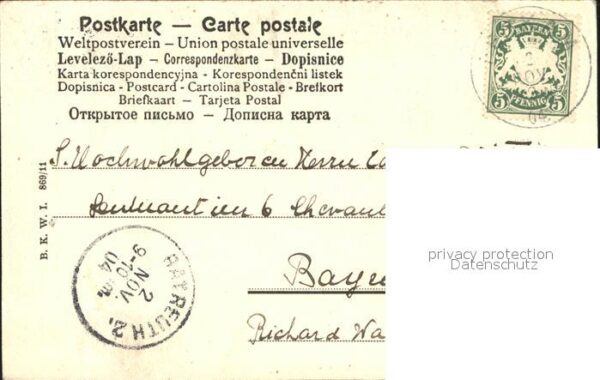 Postkarte — Carte postale
Weltpostverein – Union postale universelle
Levelező-Lap – Correspondenzkarte – Dopisnice
Karta korespondencyjna – Korespondenční listek
Dopisnica – Postcard – Cartolina Postale – Brefkort
Briefkaart – Tarjeta Postal
Открытое письмо – Дописна карта
5 BAYERN 5
5 PFENNIG 5
NOV
04
S. Hochwohlgeboren Herrn
6 Chevaul
Baye
Richard Wa
B. K. W. I. 869/11
BAYREUTH 2.
2
NOV.
04
9-10
privacy protection
Datenschutz